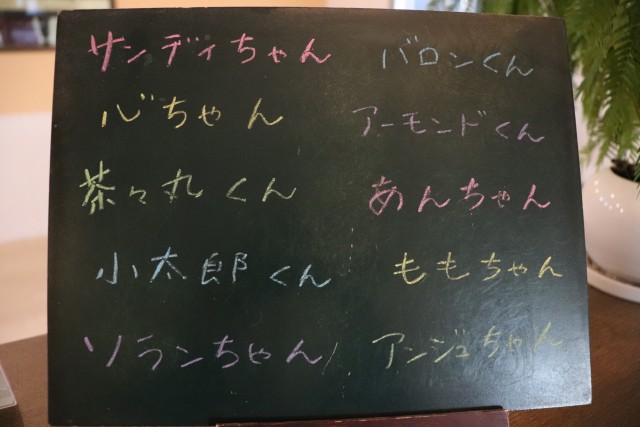 サンディちゃん
バロンくん
心ちゃん
アーモンドくん
茶々丸くん
あんちゃん
小太郎くん
ももちゃん
ソランちゃん
アンジュちゃん